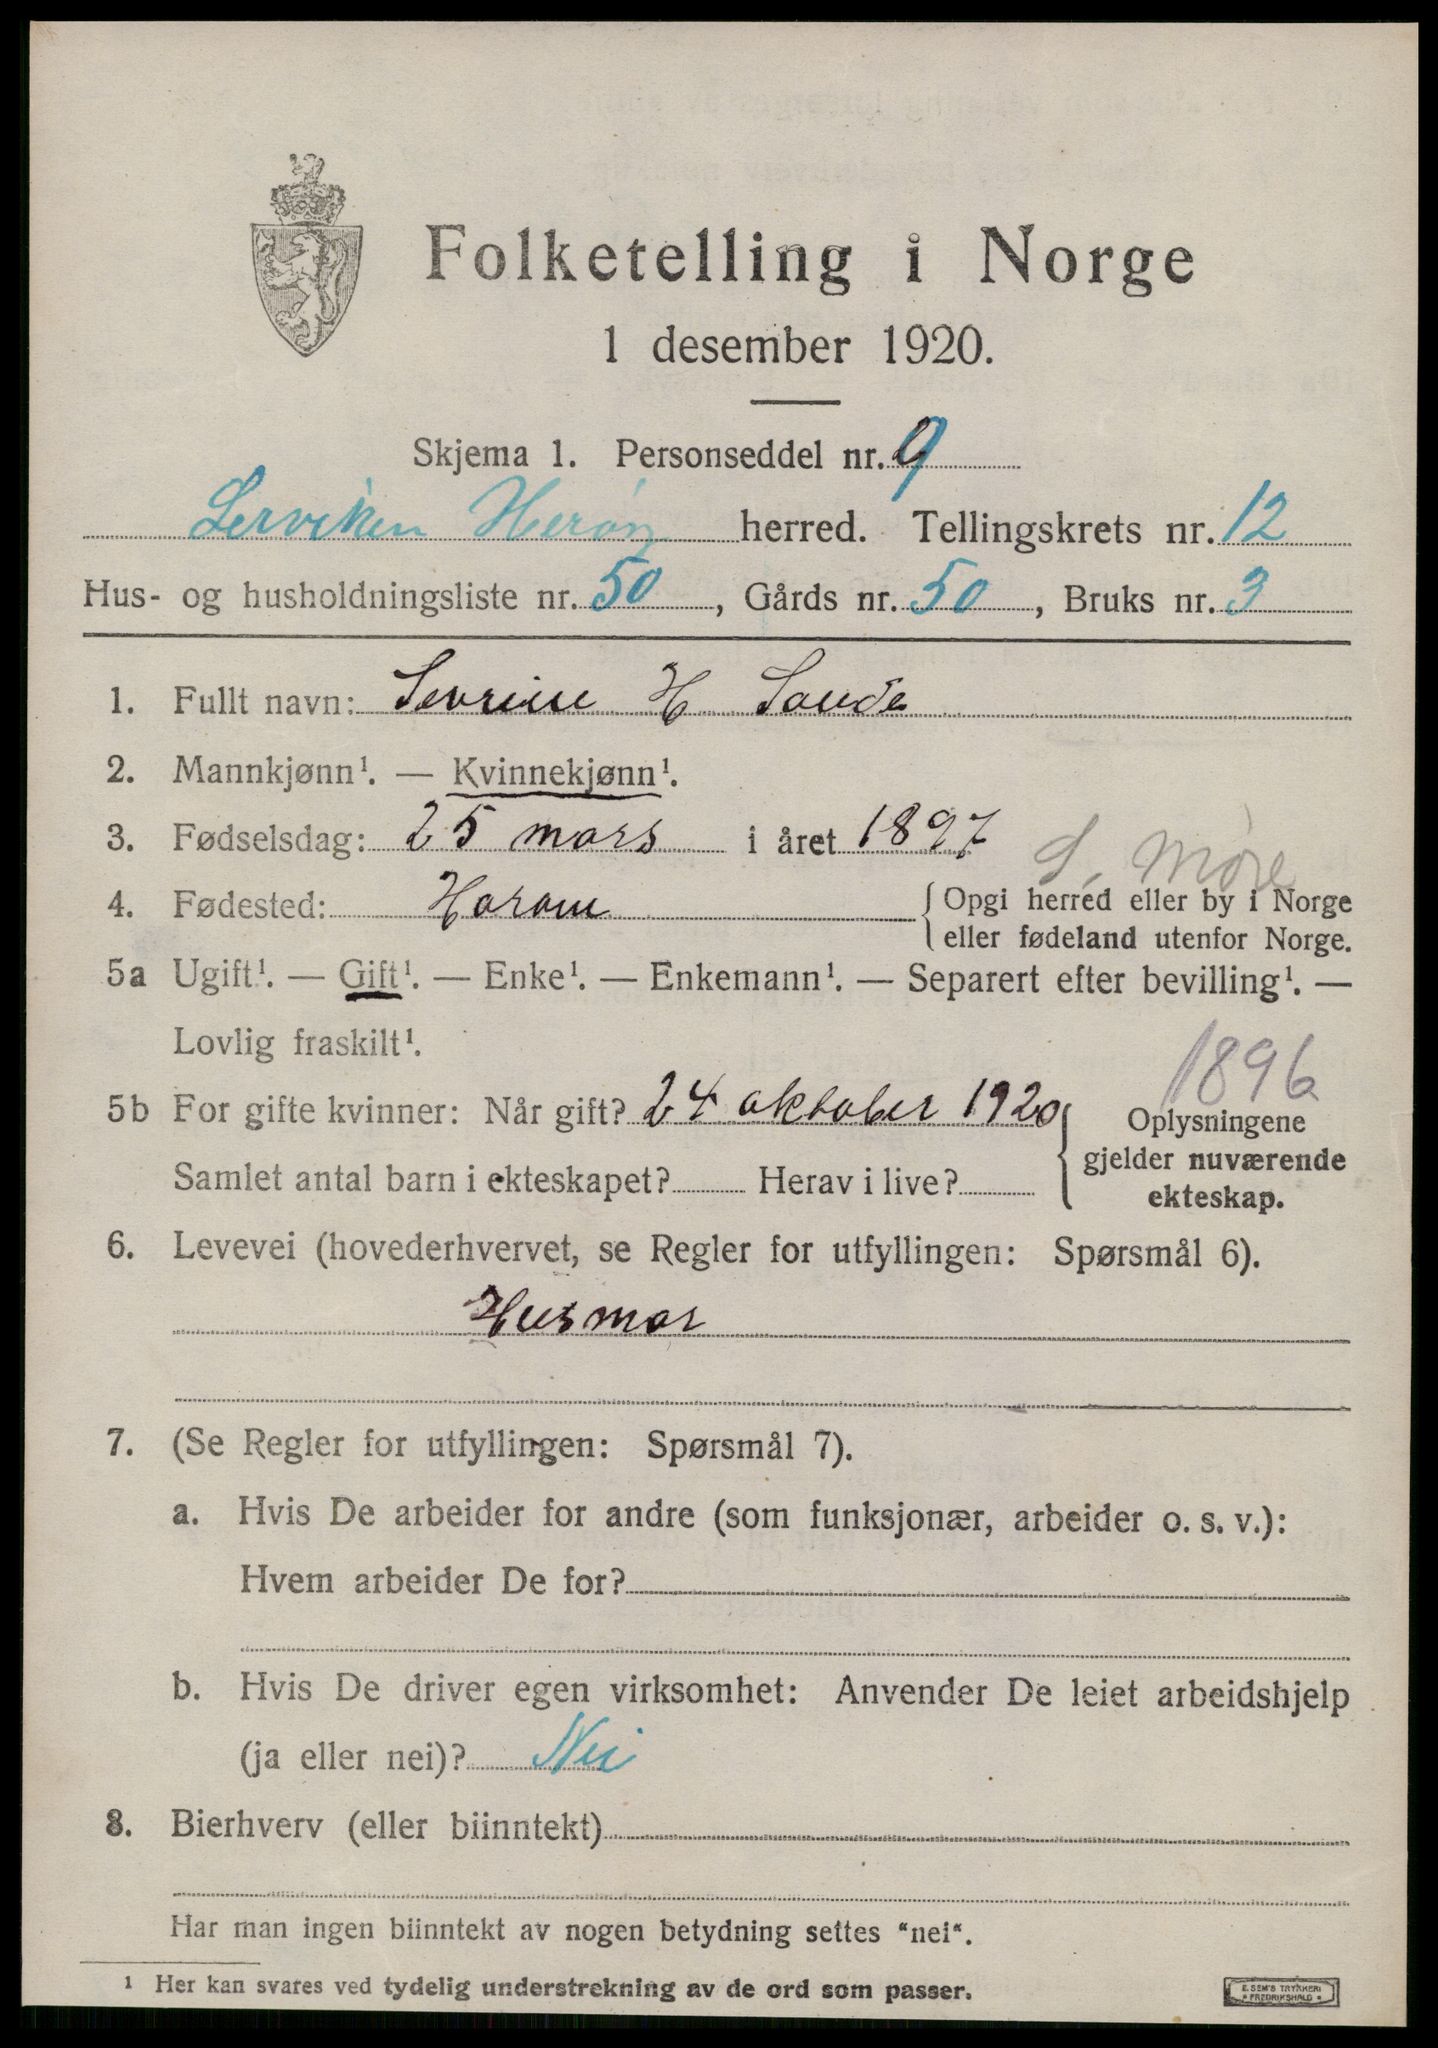 Folketelling i Norge
1 desember 1920.
Skjema 1. Personseddel nr. 9
Lerviken Herøy herred. Tellingskrets nr. 12
Hus- og husholdningsliste nr. 50, Gårds nr. 50, Bruks nr. 3
1. Fullt navn: Sevrine H Sande
2. Mannkjønn¹. — Kvinnekjønn¹.
3. Fødselsdag: 25 mars i året 1897
S. Møre
4. Fødested: Haram { Opgi herred eller by i Norge
eller fødeland utenfor Norge.
5a Ugift¹. — Gift¹. — Enke¹. — Enkemann¹. — Separert efter bevilling¹. —
Lovlig fraskilt¹.
1896
5b For gifte kvinner: Når gift? 24 oktober 1920 { Oplysningene
gjelder nuværende
ekteskap.
Samlet antal barn i ekteskapet? Herav i live?
6. Levevei (hovederhvervet, se Regler for utfyllingen: Spørsmål 6).
Husmor
7. (Se Regler for utfyllingen: Spørsmål 7).
a. Hvis De arbeider for andre (som funksjonær, arbeider o. s. v.):
Hvem arbeider De for?
b. Hvis De driver egen virksomhet: Anvender De leiet arbeidshjelp
(ja eller nei)? Nei
8. Bierhverv (eller biinntekt)
Har man ingen biinntekt av nogen betydning settes "nei".
¹ Her kan svares ved tydelig understrekning av de ord som passer.
E. SEM'S TRYKKERI
FREDRIKSHALD